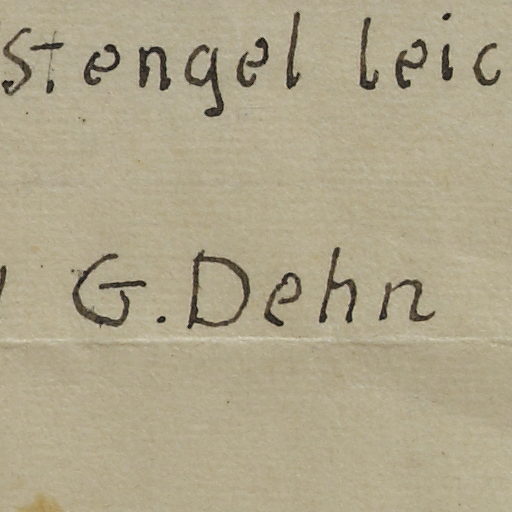 Stengel leic
G. Dehn